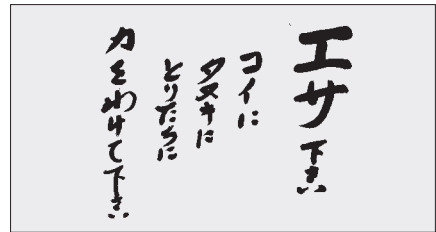 エサ下さい
コイに
タヌキに
とりたちに
力をわけて下さい